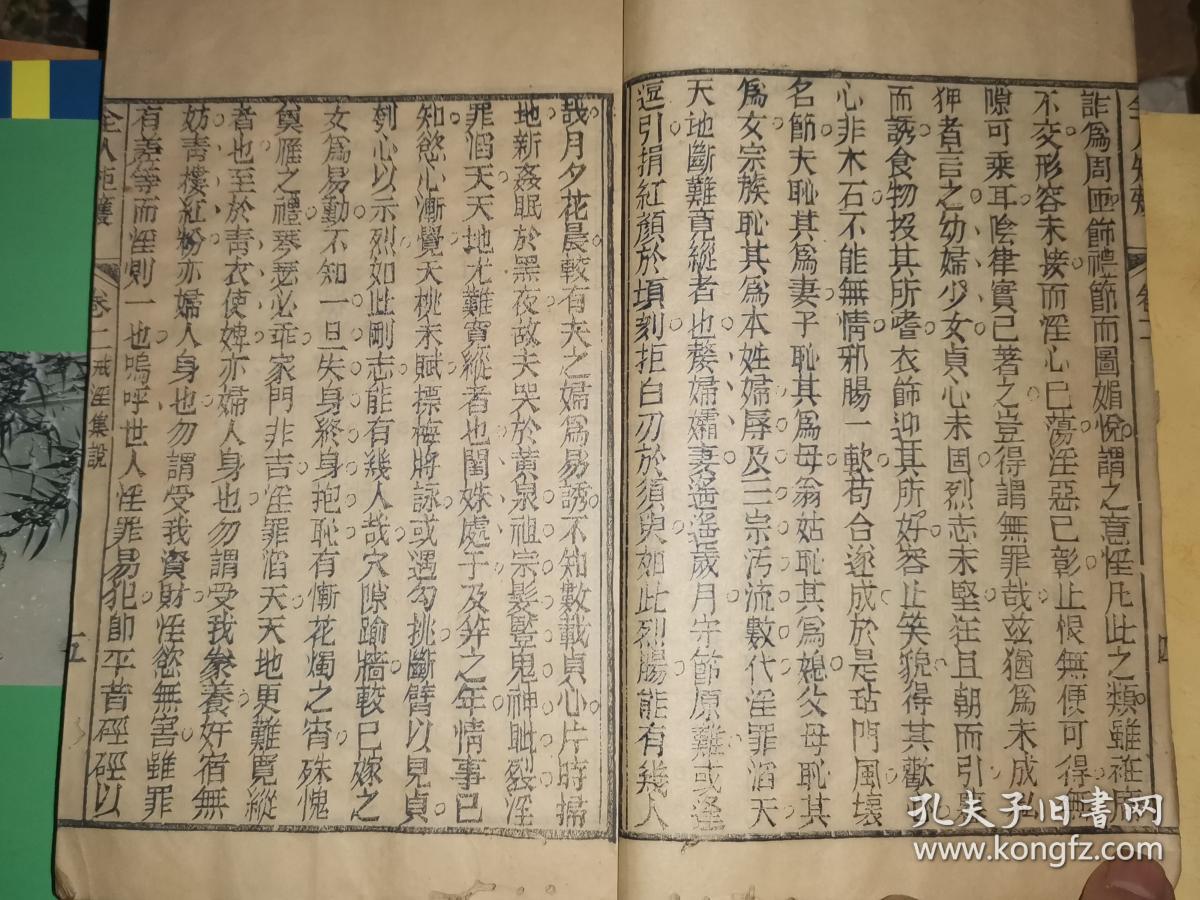 詐爲周匝飾禮節而圖媚悅謂之意淫凡此之類雖在
不交形容未接而淫心巳蕩淫惡巳彰止恨無便可得無
隙可乘耳陰律實巳著之豈得謂無罪哉茲猶爲未成
狎者言之幼婦少女貞心未固烈志未堅狂且朝而引
而誘食物投其所嗜衣飾迎其所好容止笑貌得其歡
心非木石不能無情邪腸一軟苟合遂成於是玷門風壞
名節夫恥其爲妻子恥其爲母翁姑恥其爲媳父母恥其
爲女宗族恥其爲本姓婦辱及三宗汚流數代淫罪滔天
天地斷難寬縱者也嫠婦孀妻迢遙歲月守節原難或逢
逗引捐紅顏於頃刻拒白刃於須臾如此烈腸能有幾人
哉月夕花晨較有夫之婦爲易誘不知數載貞心片時掃
地新姦眠於黑夜故夫哭於黃泉祖宗髮豎鬼神眦裂淫
罪滔天天地尤難寬縱者也閨姝處子及笄之年情事巳
知慾心漸覺夭桃未賦摽梅將詠或遇勾挑斷臂以見貞
刳心以示烈如此剛志能有幾人哉穴隙踰牆較巳嫁之
女爲易動不知一旦失身終身抱恥有慚花燭之宵殊愧
奠雁之禮琴瑟必乖家門非吉淫罪滔天天地更難寬縱
者也至於靑衣使婢亦婦人身也勿謂受我豢養奸宿無
妨靑樓紅粉亦婦人身也勿謂受我資財淫慾無害雖罪
有差等而淫則一也嗚呼世人淫罪易犯卽平昔硜硜以
全人矩矱
卷二 戒淫集說
五
孔夫子旧书网
www.kongfz.com